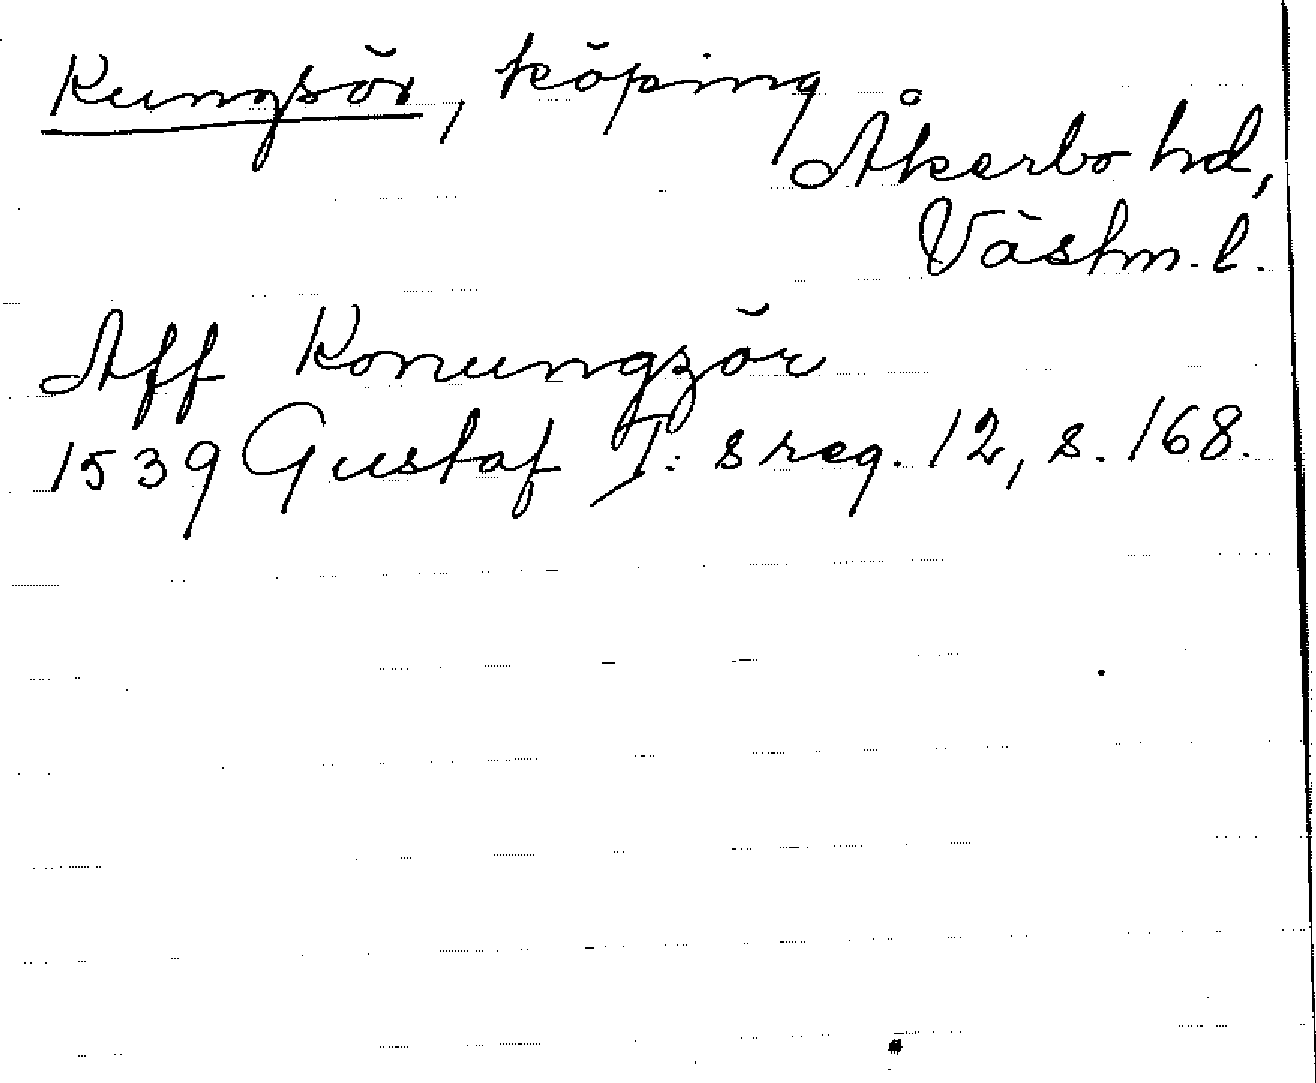 Kungsör, köping
Åkerbo hd,
Västm. l.
Aff Konungzör
1539 Gustaf I: s reg. 12, s. 168.